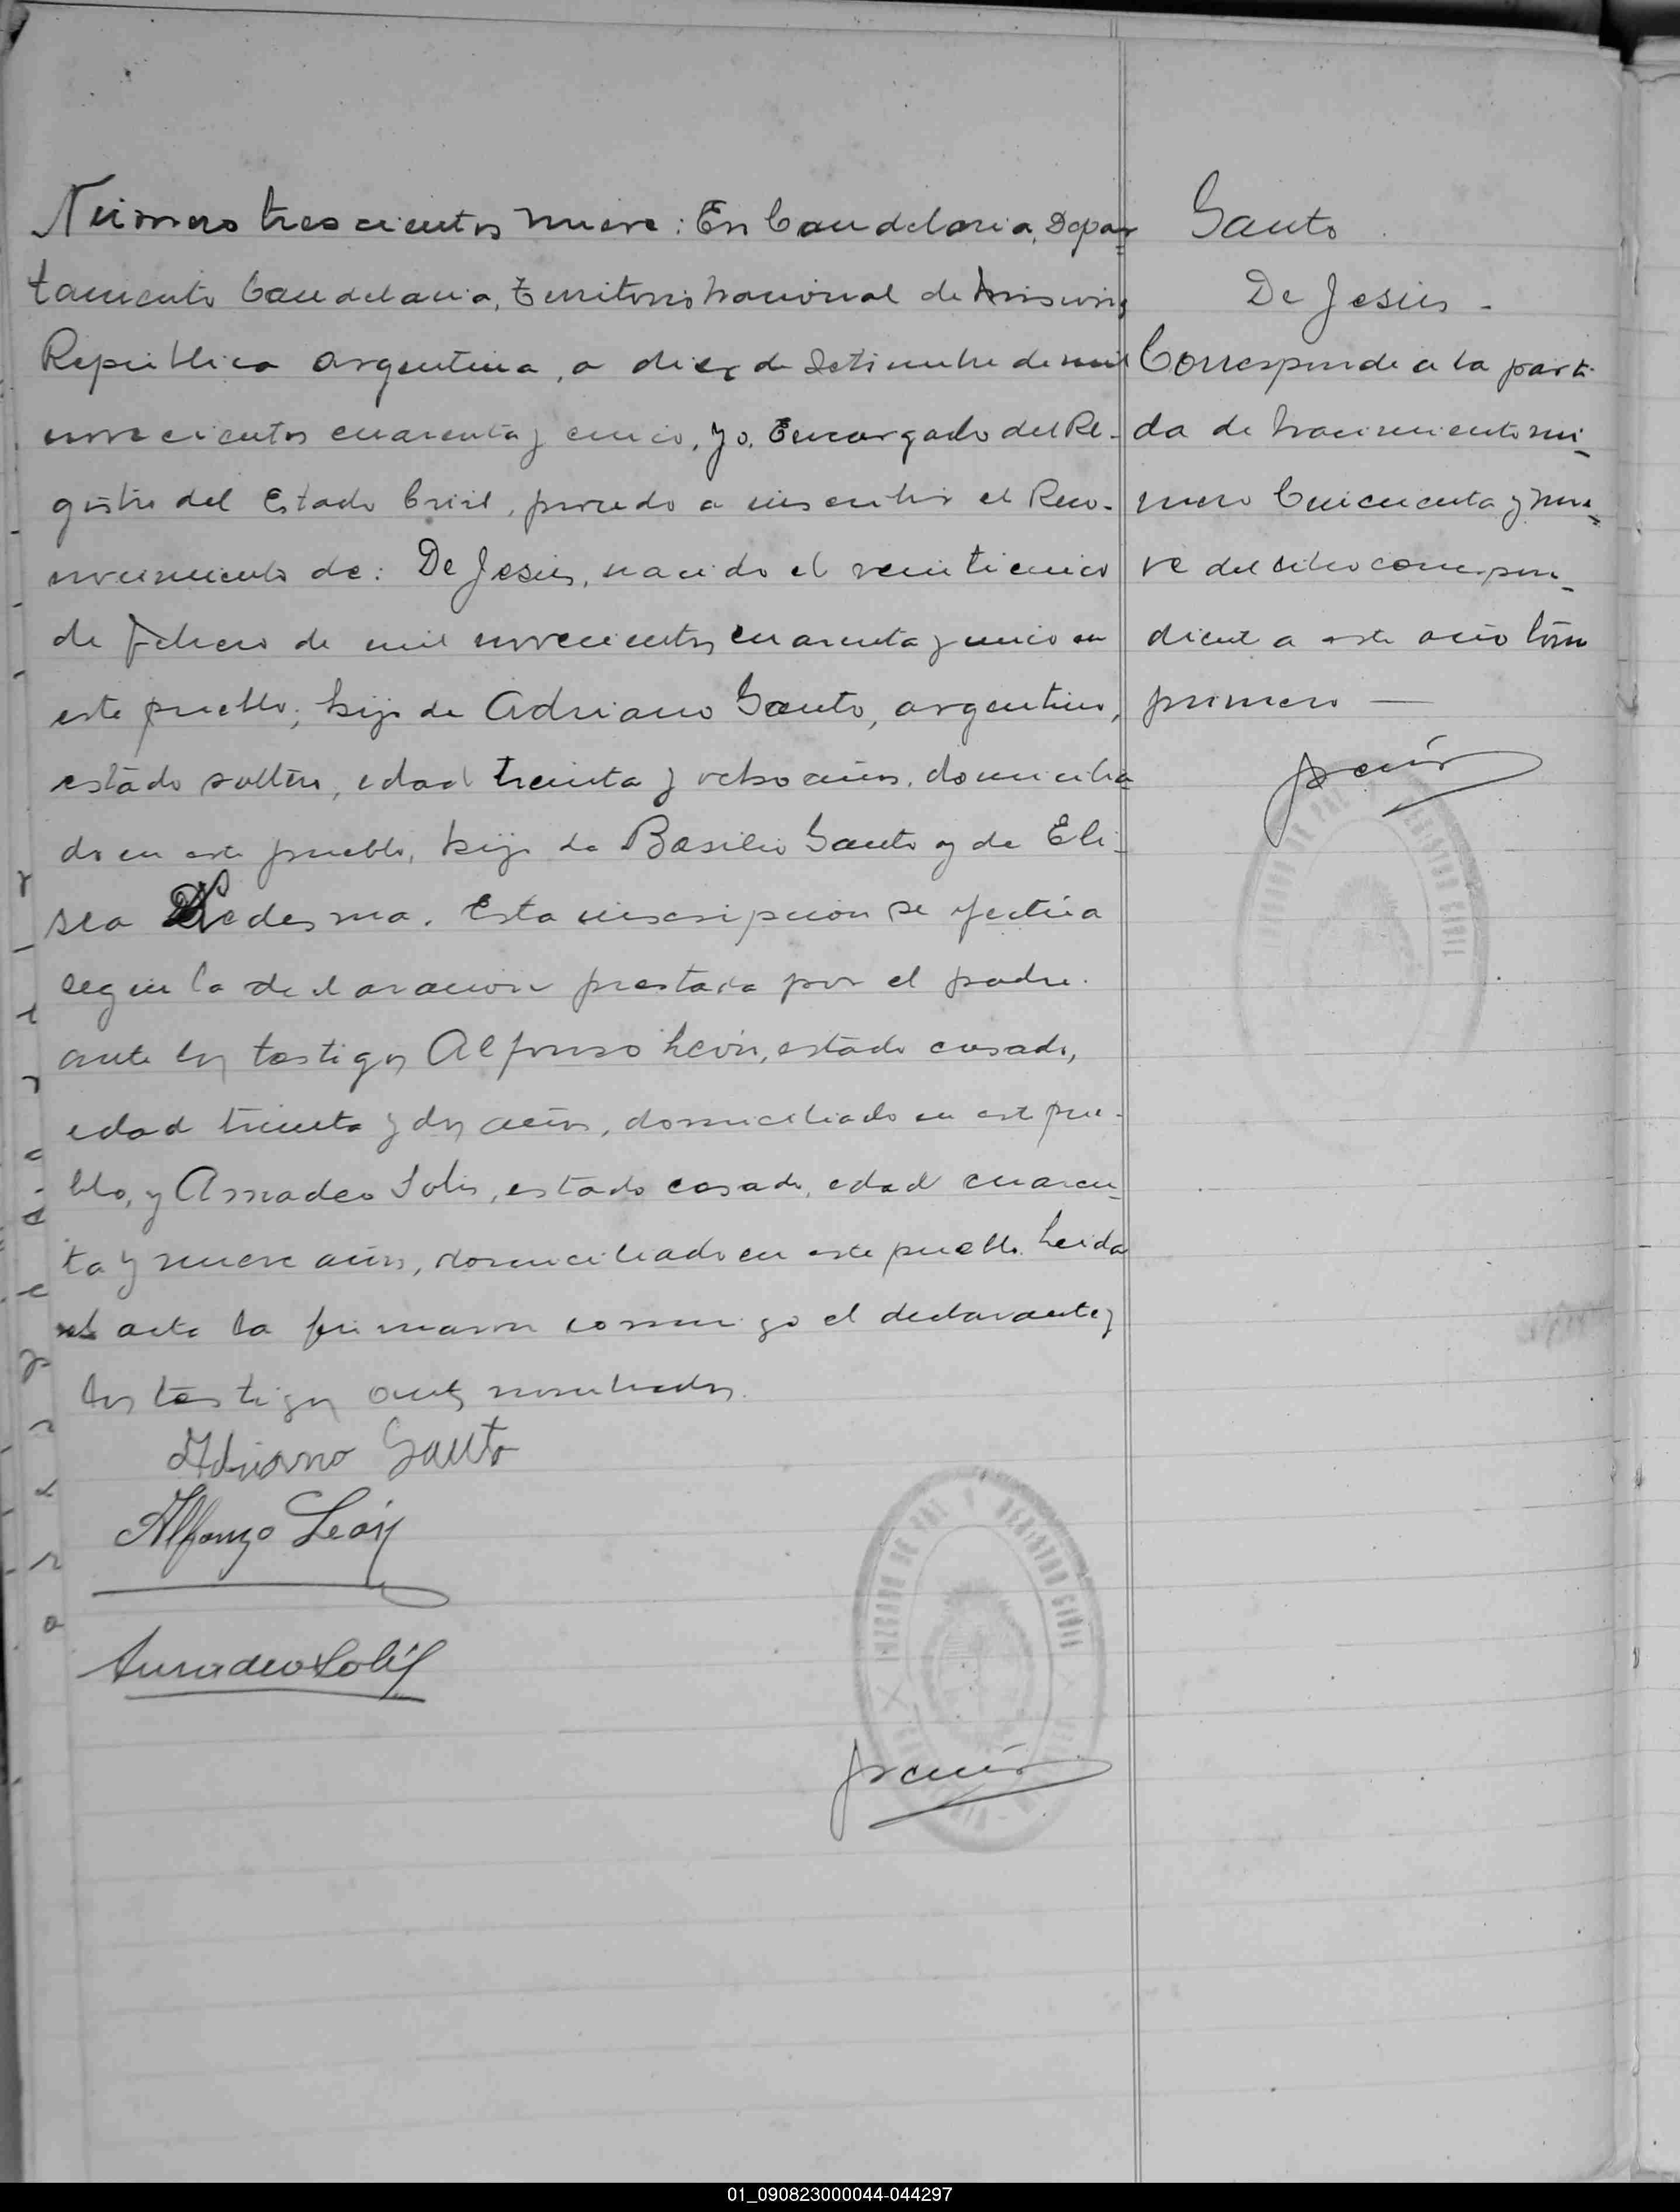 Número trescientos nueve: En Candelaria, Depar=
tamento Candelaria, Territorio Nacional de Misiones
República Argentina, a diez de Setiembre de mil
novecientos cuarenta y cinco, yo, Encargado del Re-
gistro del Estado Civil, procedo a inscribir el Reco-
nocimiento de: De Jesús, nacido el veinticinco
de febrero de mil novecientos cuarenta y cinco en
este pueblo, hijo de Adriano Santo, argentino,
estado soltero, edad treinta y ocho años, domicilia
do en este pueblo, hijo de Basilio Santo y de Eli-
sea Ledesma. Esta inscripción se efectúa
según la declaración prestada por el padre.
ante los testigos Alfonso León, estado casado,
edad treinta y dos años, domiciliado en este pue-
blo, y Amadeo Solis, estado casado, edad cuaren-
ta y nueve años, domiciliado en este pueblo. Leida
el acta la firmaron conmigo el declarante y
los testigos antes nombrados.
Adriano Santo
Alfonzo León
Amadeo Solís
Santo
De Jesús -
Corresponde a la parti-
da de Nacimiento nú-
mero Cincuenta y nue=
ve del libro correspon-
diente a este año Tomo
primero —
JUZGADO DE PAZ Y REGISTRO CIVIL
JUZGADO DE PAZ Y REGISTRO CIVIL
01_090823000044-044297